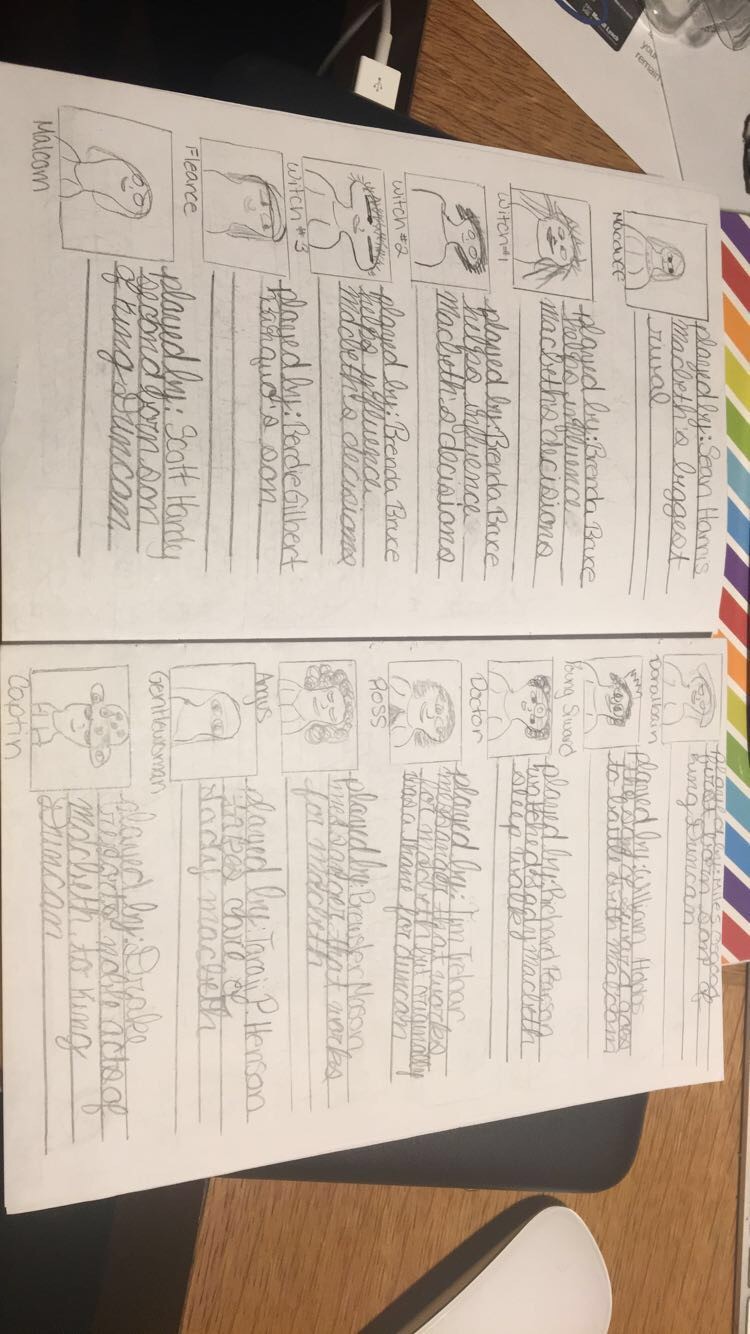 Macduff
played by: Sean Harris
macbeth's biggest
rival
Witch #1
played by: Brenda Bruce
helps influence
macbeths decisions
Witch #2
played by: Brenda Bruce
helps influence
macbeth's decisions
Witch #3
played by: Brenda Bruce
helps influence
macbeth's decisions
Fleance
played by: Berdie Gilbert
son
Malcom
played by: Scott Hardy
second born son
of King Duncan
Donalbain
first born son of
King Duncan
Young Siward
played by: William
the son of Siward goes
to battle with malcom
Doctor
played by: Richard Pearson
watched lady macbeth
sleep walk
Ross
played by: Tim
that works
for macbeth but originally
was a thane for duncan
Angus
played by: Brewster Mason
that works
for macbeth
Gentlewoman
played by: Taraji P. Henson
takes care of
lady macbeth
Captin
played by: Drake
reports noble acts of
macbeth to King
Duncan
you
remain